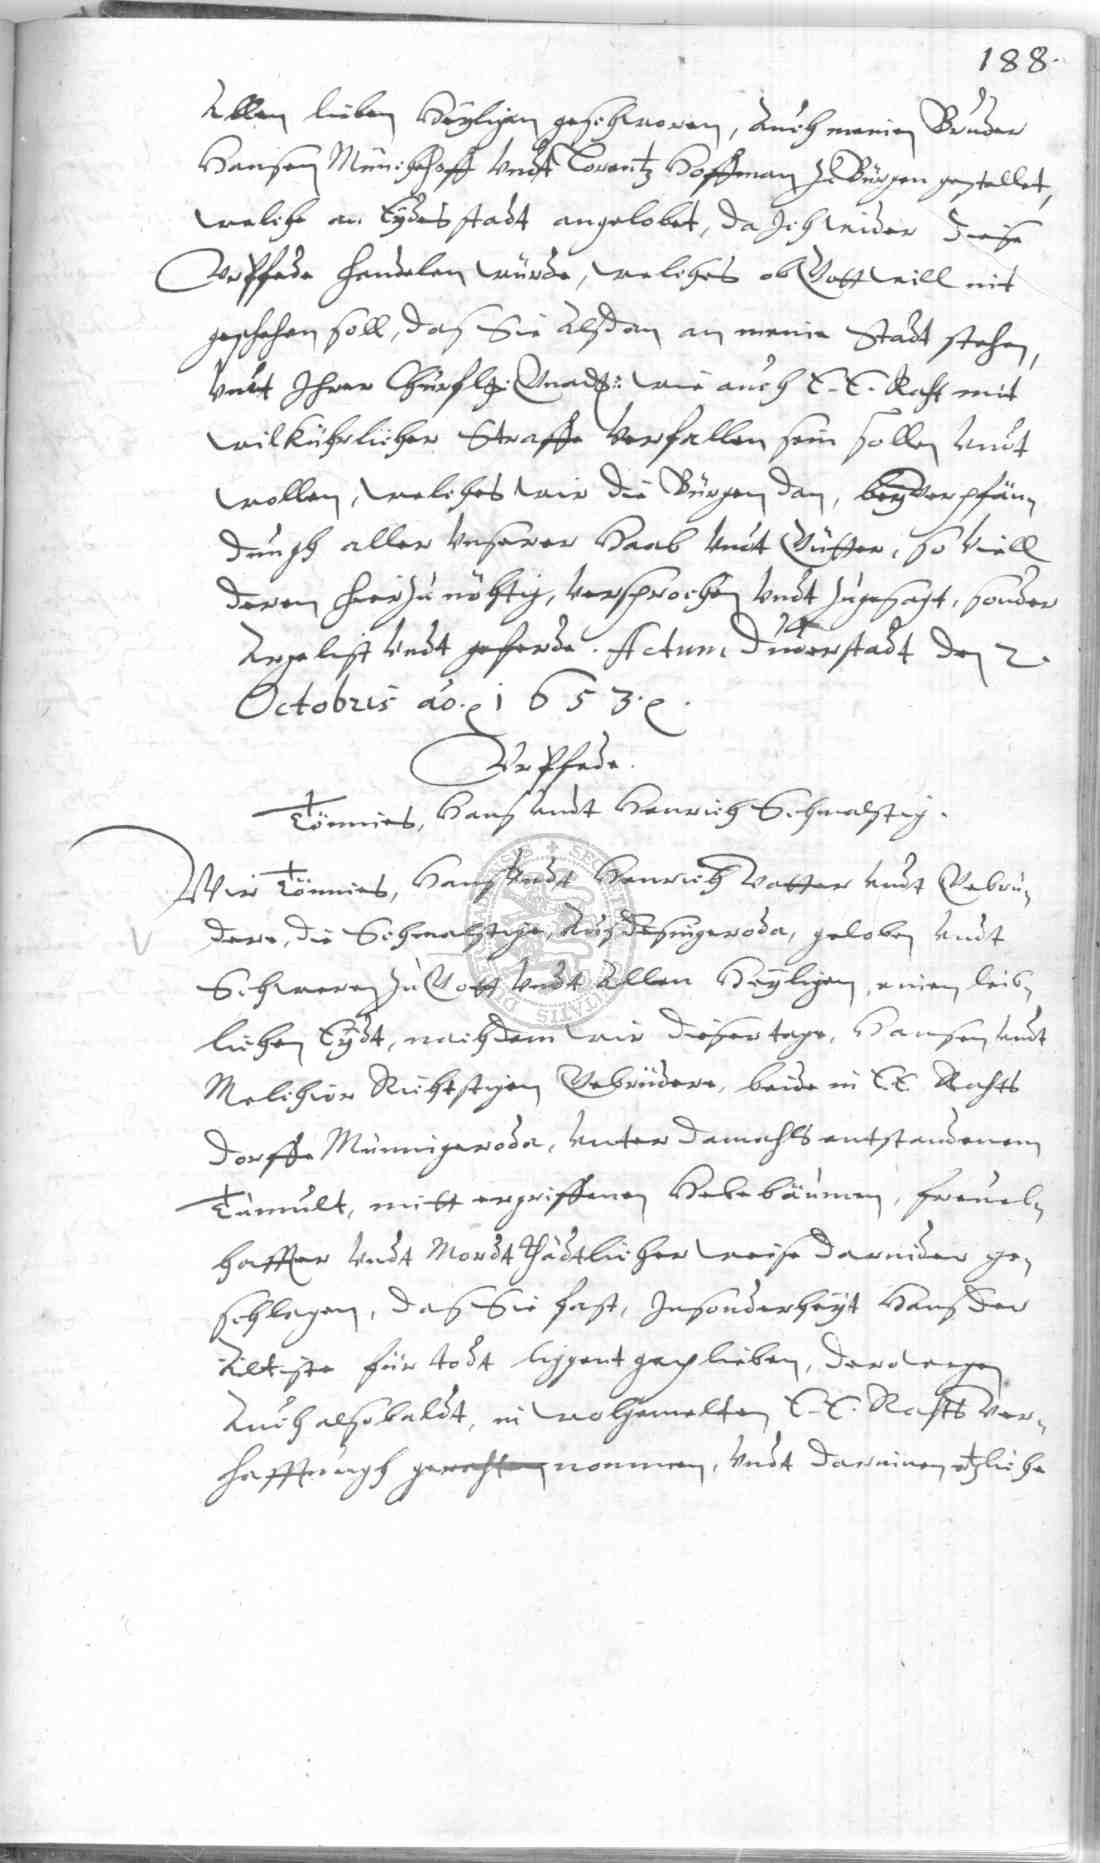 188.
Allen lieben Heyligen geschworen, Auch meinen Bruder
Hansen Münchehoff undt Lorentz Hoffman zu Bürgen gestellet,
welche an Eydes stadt angelobet, da Ich wider diese
Urpfede handelen würde, welches ob Gott will nit
geschehen soll, das Sie Alsdan an meine Stadt stehen,
undt Ihrer Churfl. Gnad: wie auch E. E. Raht mit
wilkührlicher Straffe verfallen sein sollen undt
wollen, welches wir die Bürgen dan, bey verpfän„
dungh aller unserer Haab undt Gütter, so viell
deren hierzu nöhtig, versprochen undt zugesagt, sonder
Argelist undt geferde. Actum Duderstadt den 2.
Octobris ao. 1653.
Urpfede.
Tönnies, Hans undt Henrich Schmalstig.
Wir Tönnies, Hans undt Henrich Vatter undt Gebrü„
dere, die Schmalstige, Aus Desingeroda, geloben undt
Schweren zu Gott undt Allen Heyligen, einen leib„
lichen Eydt, nachdem wir dieser tage, Hansen undt
Melchior Richtstigen Gebrüdere, beide in E. E. Rahts
dorffe Münnigeroda, unter damahls entstandenem
Tumult, mitt ergriffenen Hebebäumen, freuel„
haffter undt Mordt Thädtlicher weise darnider ge„
schlagen, das Sie fast, Insonderheyt Hans der
Älteste für todt liggent geplieben, derowegen
Auch alsobaldt, in wolgemelten E. E. Rahts ver„
hafftungh nommen, undt darinnen etzliche